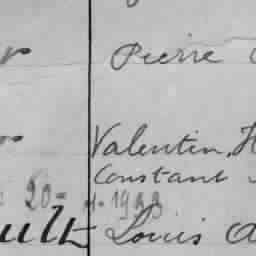 Pierre
Valentin, H
Constant
20- 1933
ult Louis A